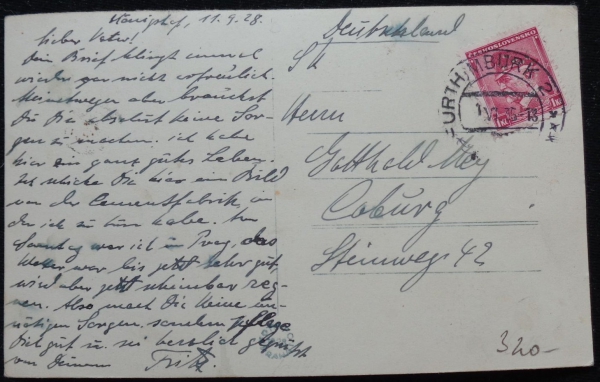 Königshof, 11.9.28.
Lieber Vater!
Dein Brief klingt einmal
wieder gar nicht erfreulich.
Meinetwegen aber brauchst
Du Dir absolut keine Sor-
gen zu machen. ich habe
hier ein ganz gutes Leben.
Ich schicke Dir hier ein Bild
von der Cementfabrik in
der ich zu tun habe. Am
Sonntag war ich in Prag, das
Wetter war bis jetzt sehr gut,
wird aber jetzt scheinbar reg-
nen. Also mach Dir keine un-
nötigen Sorgen, sondern pflege
Dich gut u. sei herzlich gegrüsst
von Deinem Fritz
Deutschland
Herrn
Gotthold Mey
Coburg
Steinweg 42
ČESKOSLOVENSKO
FURTH
2
320-